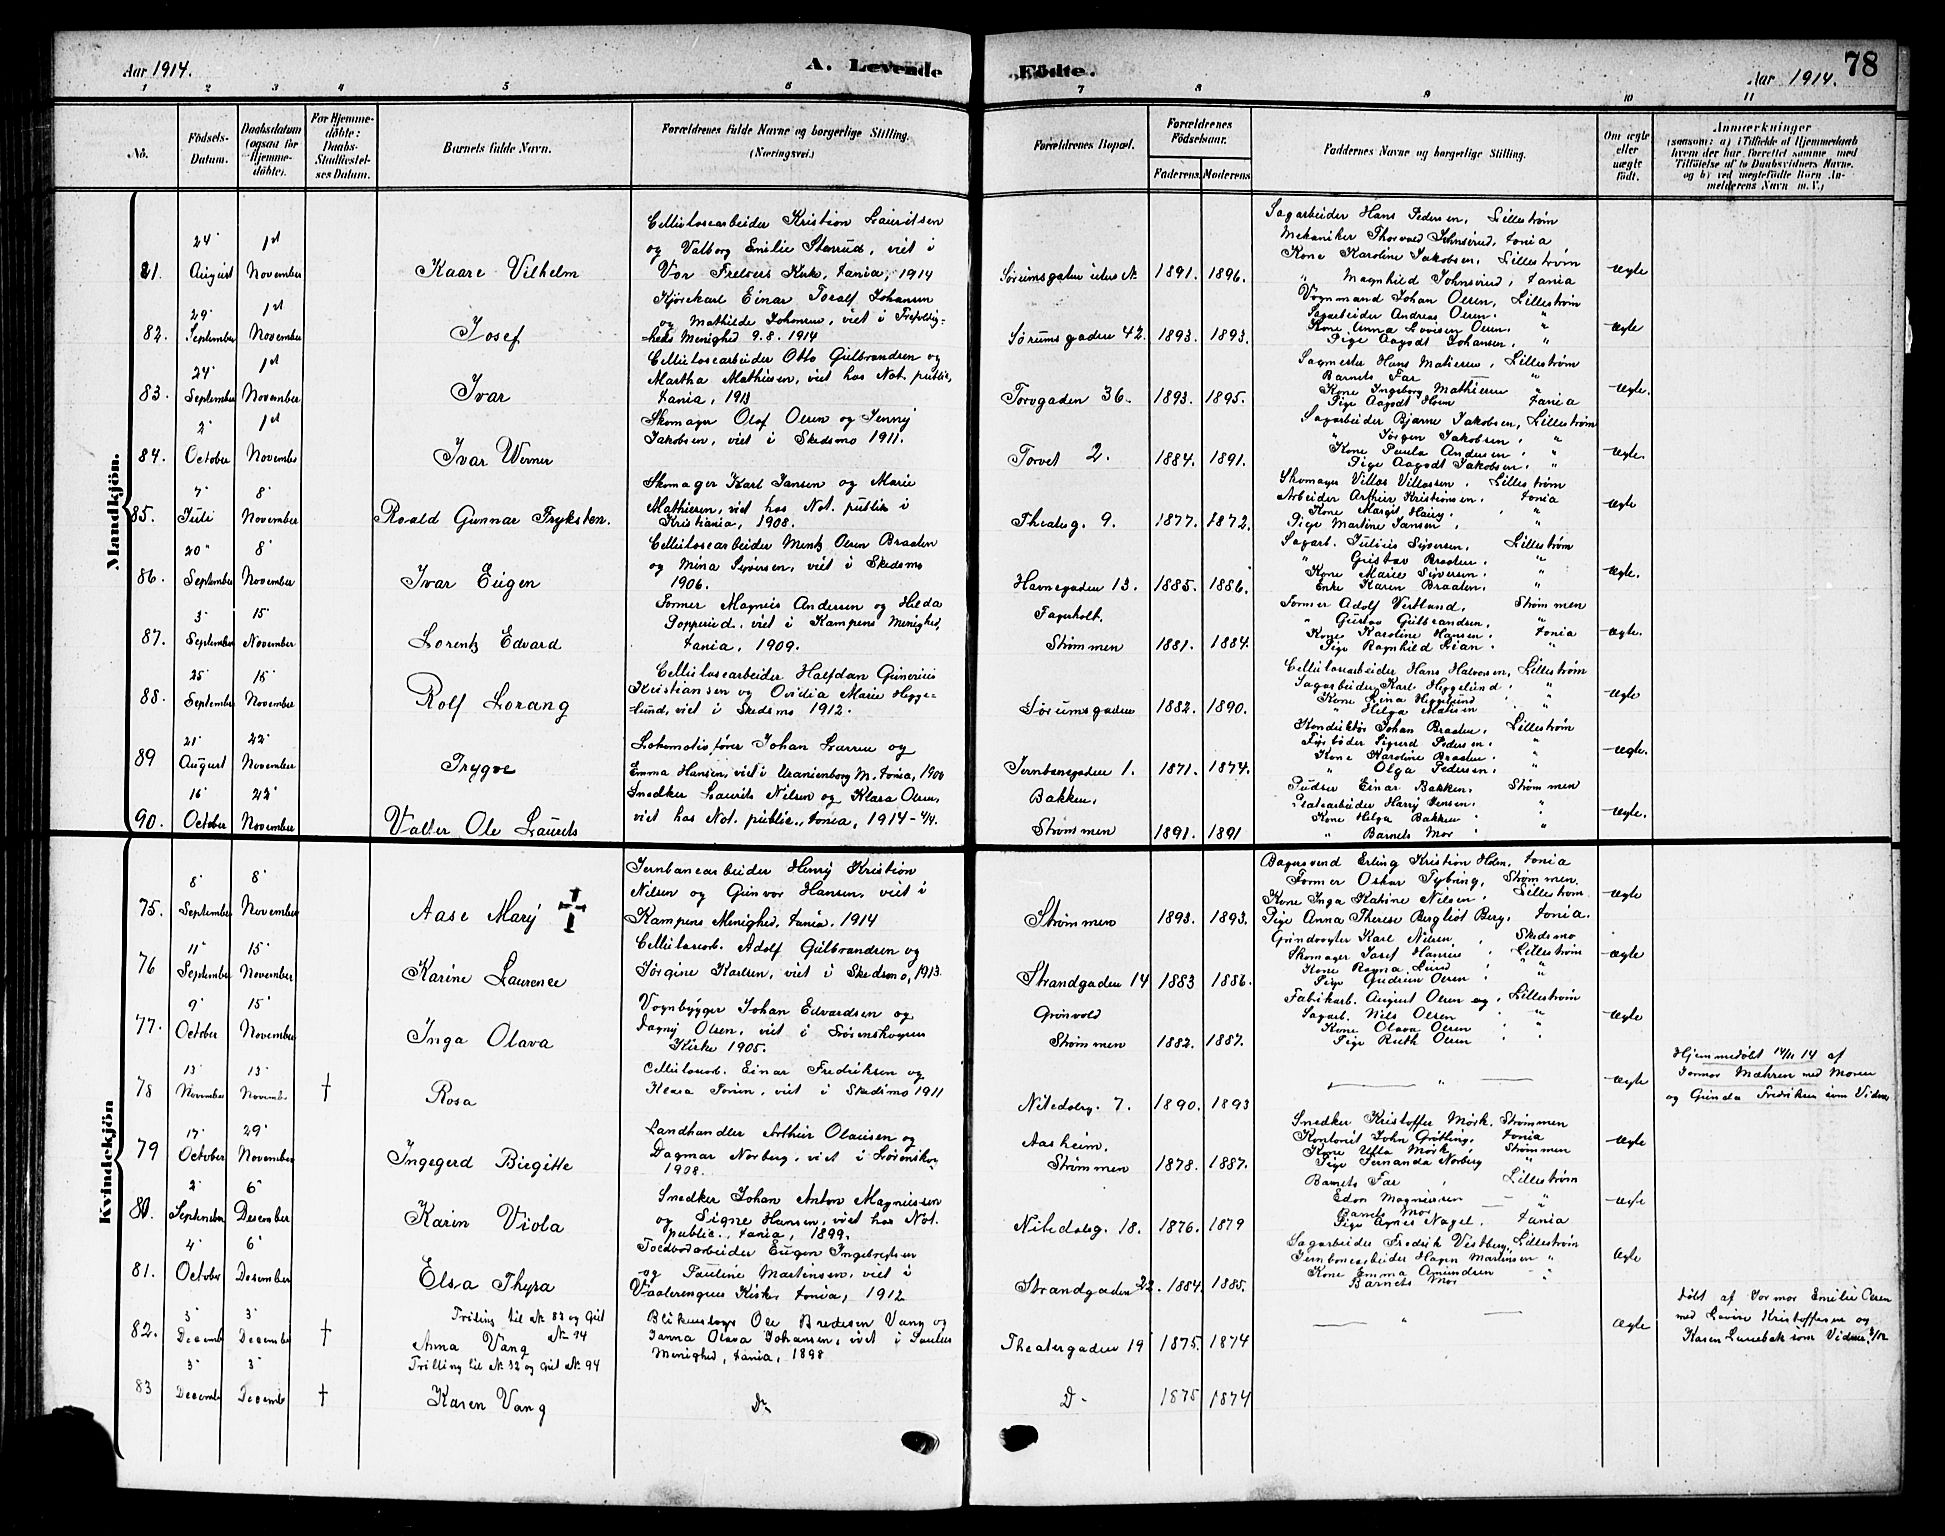 Aar 1914.
A. Levende
Fødte.
Aar 1914.
78
1 2 3 4 5 6 7 8 9 10 11
No.
Fødsels-
Datum.
Daabsdatum
(ogsaa for
Hjemme-
døbte).
For Hjemme-
døbte:
Daabs-
Stadfæstel-
ses Datum.
Barnets fulde Navn.
Forældrenes fulde Navne og borgerlige Stilling.
(Næringsvei.)
Forældrenes Bopæl.
Forældrenes
Fødselsaar.
Faderens. Moderens.
Faddernes Navne og borgerlige Stilling.
Om ægte
eller
uægte
født.
Anmærkninger
(saasom: a) i Tilfælde af Hjemmedaab
hvem der har forrettet samme med
Tilføielse af to Daabsvidners Navne,
og b) ved uægtefødte Børn An-
melderens Navn m. V.)
Mandkjøn.
81.
24'
August
1st
November
Kaare Vilhelm
Cellulosearbeider Kristian Lauritsen
og Valborg Emilie Storrud, viet i
Vor Frelsers Kirke, tania, 1914
1891. 1896.
Sagarbeider Hans Pedersen, Lillestrøm
Mekaniker Thorvald Johnsrud, tonia
Kone Karoline Jakobsen, Lillestrøm
" Magnhild Johnsrud, tania
ægte
82.
29'
September
1st
November
Josef
Kjørekarl Einar Toralf Johansen
og Mathilde Johansen, viet i Trefoldig-
heds Menighed 9.8.1914
Sørumsgaden 42. 1893. 1893.
Vognmand Johan Olsen, Lillestrøm
Sagarbeider Andreas Olsen. "
Kone Anna Lovisen Olsen. "
Pige Aagodt Johansen. "
ægte
83.
24'
September
1st
November
Ivar
Cellulosearbeider Otto Gulbrandsen og
Martha Mathisen, viet hos Not. public,
tania, 1913
Torvgaden 36. 1893. 1895.
Sagmester Hans Matisen, Lillestrøm
Barnets Far — "
Kone Ingeborg Mathiesen "
Pige Aagodt Holm tania
ægte.
84.
2'
October
1st
November
Ivar Werner
Skomager Olaf Olsen og Jenny
Jakobsen, viet i Skedsmo 1911.
Torvet 2. 1884. 1891.
Sagarbeider Bjarne Jakobsen, Lillestrøm
" Jørgen Jakobsen. "
Kone Paula Andersen. "
Pige Aagodt Jakobsen. "
ægte.
85.
7'
Juli
8'
November
Roald Gunnar Fryksten.
Skomager Karl Jansen og Marie
Mathisen, viet hos Not. public i
Kristiania, 1908.
Theaterg. 9. 1877. 1872.
Skomager Villas Villassen. Lillestrøm
Arbeider Arthur Kristiansen. tonia
Kone Margit "
Pige Martine Jansen, "
ægte
86.
20'
September
8'
November
Ivar Eugen
Cellulosearbeider Mentz Olsen Braaten
og Mina Syversen, viet i Skedsmo
1906.
Havnegaden 13. 1885. 1886.
Sagarb. Julius Syversen, Lillestrøm
" Gustav Braaten. "
Kone Marie Syversen. "
Enke Karen Braaten. "
ægte.
87.
3'
September
15'
November
Lorentz Edvard
Former Magnus Andersen og Hilda
Popperud, viet i Kampens Menighed,
tania, 1909.
Fagerholt.
Strømmen 1881. 1884.
Former Adolf Vestlund, Strømmen
" Gustav Gulbrandsen, "
Kone Karoline Hansen. tonia
Pige Ragnhild Lian. "
ægte.
88.
25'
September
15'
November
Rolf Lorang
Cellulosearbeider Halfdan Gunerius
Kristiansen og Ovidia Marie Hegge-
lund, viet i Skedsmo 1912.
Sørumsgaden 1882. 1890.
Cellulosearbeider Hans Halvorsen, Lillestrøm
Sagarbeider Karl Heggelund "
Kone Lina Heggelund "
" Helga Matisen "
ægte
89
21'
August
22'
November
Trygve
Lokomotivfører Johan Larsen og
Emma Hansen, viet i Uranienborg M. tonia, 1900
Jernbanegaden 1. 1871. 1874.
Konduktør Johan Braaten. Lillestrøm
Fyrbøder Sigurd Pedersen. "
Kone Karoline Braaten. "
" Olga Pedersen. "
ægte.
90.
15'
October
22'
November
Valter Ole Laurits
Snedker Laurits Nilsen og Klara Olsen,
viet hos Not. public., tonia, 1914 - 4/4.
Bakken.
Strømmen 1891. 1891
Pudser Einar Bakken. Strømmen
Platearbeider Harry Jensen. "
Kone Helga Bakken "
" Barnets Mor "
ægte.
Kvindekjøn
75.
5'
September
8'
November
Aase Mary
Jernbanearbeider Henry Kristian
Nilsen og Gunvor Hansen, viet i
Kampens Menighed, tania. 1914
Strømmen 1893. 1893.
Bagersvend Erling Kristian Holm, tonia
Former Oskar Tybring, Strømmen.
Kone Inga Katrine Nilsen. Lillestrøm
Pige Anna Therese Bergliot Berg, tonia.
ægte
76
11'
September
15'
November
Karine Laurence
Cellulosearb. Adolf Gulbrandsen og
Jørgine Karlsen, viet i Skedsmo, 1913
Strandgaden 14 1883 1886.
Karl Nilsen Skedsmo
Skomager Josef Hansen Lillestrøm
Kone Ragna Lund "
Pige Gudrun Olsen "
ægte
77.
9'
October
15'
November
Inga Olava
Vognbygger Johan Edvardsen og
Dagny Olsen, viet i Lørenskogens
Kirke 1905.
Grønvold
Strømmen 1882. 1887.
Fabrikarb. August Olsen og, Lillestrøm
Sagarb. Nils Olsen "
Kone Olava Olsen "
Pige Ruth Olsen "
ægte
78
13'
November
13'
November
†
Rosa
Cellulosearb. Einar Fredriksen og
Klara viet i Skedsmo 1911
Nitedalsg. 7. 1890. 1893
— " —
ægte
Hjemmedøbt 14/11 14 af
Jormor Mæhren med Moren
og Gunda Fredriksen som Vidner
79
17'
October
29'
November
Ingegerd Birgitte
Landhandler Arthur Olausen og
Dagmar Norberg, viet i Lørenskog
1908.
Aasheim.
Strømmen 1878. 1887.
Snedker Kristoffer Mork. Strømmen
Kontorist John Grøtling. tonia
Kone Ulla Mork, Strømmen
Pige Fernanda Norberg "
ægte
80.
2'
September
6'
Desember
Karin Viola
Snedker Johan Anton Magnussen
og Signe Hansen, viet hos Not.
public., tania, 1899.
Nitedalsg. 18. 1876. 1879
Barnets Far, Lillestrøm
Edon Magnussen — "
Barnets Mor "
Pige Agnes Nagel. tania
ægte
81.
4'
October
6'
Desember
Elsa Thyra
Eugen Ingebretsen
og Pauline Martinsen, viet i
Vaalerengens Kirke, tonia, 1912
Strandgaden 22. 1884. 1885.
Sagarbeider Fredrik Vestberg, Lillestrøm
Jernbanearbeider Hagen Martinsen "
Kone Emma Amundsen "
Barnets Mor "
ægte
82.
3'
Decemb
3'
Desember
†
Trilling til Nr. 83 og Gut
Nr. 94
Anna Vang
Blikenslager Ole Bredesen Vang og
Janna Olava Johansen, viet i Paulus
Menighed, tania, 1898
Theatergaden 19 1875. 1874
— " —
ægte
døbt af Jormor Emilie Olsen
med Lovise Kristoffersen og
Karen Lundbak som Vidner 3/12
83
3'
Decemb
3'
Decemb
†
Trilling til Nr. 82 og Gut Nr. 94
Karen Vang
Do
D- 1875 1874